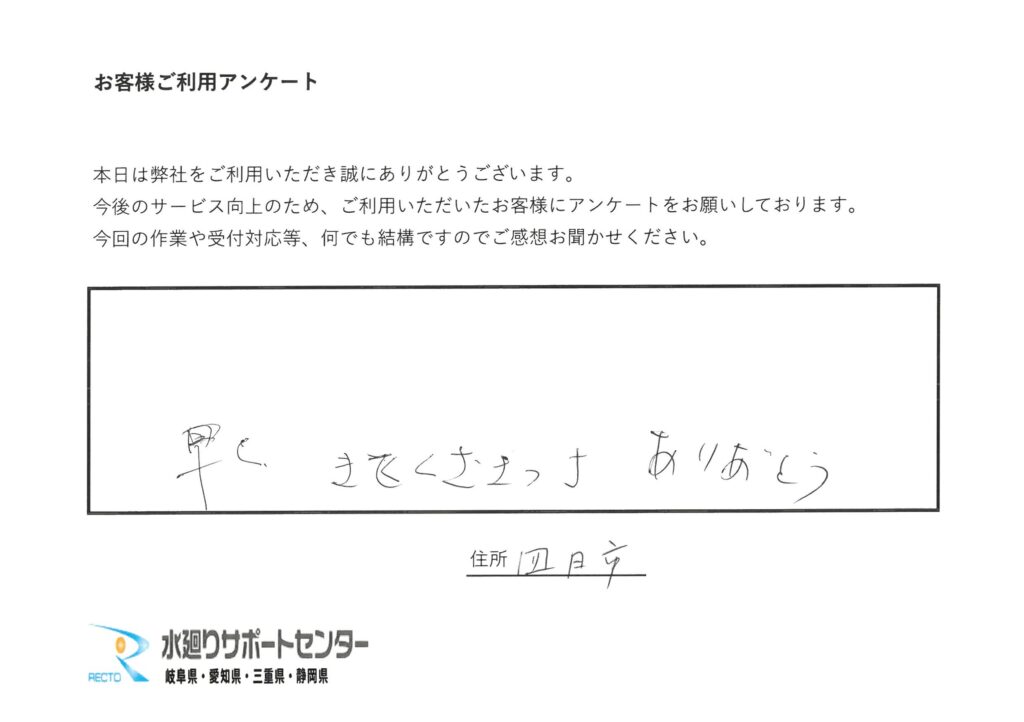 お客様ご利用アンケート
本日は弊社をご利用いただき誠にありがとうございます。
今後のサービス向上のため、ご利用いただいたお客様にアンケートをお願いしております。
今回の作業や受付対応等、何でも結構ですのでご感想お聞かせください。
早く きてくださって ありがとう
住所 四日市
RECTO 水廻りサポートセンター
岐阜県・愛知県・三重県・静岡県